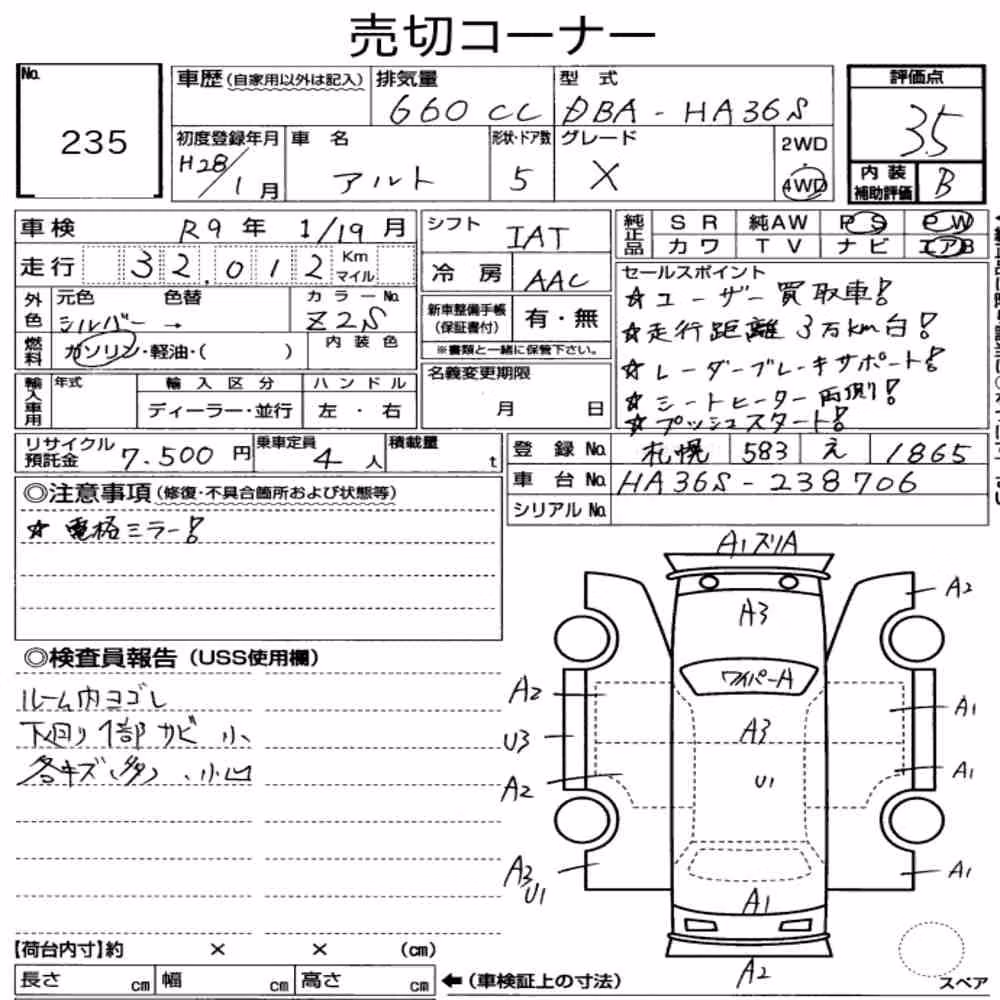 売切コーナー
No.
235
車歴(自家用以外は記入)
排気量
660 CC
型式
DBA - HA36S
初度登録年月
H28/1月
車名
アルト
形状・ドア数
5
グレード
X
2WD
・
4WD
評価点
3.5
内装補助評価
B
車検 R9年 1/19月
走行 32,012 Km マイル
外色
元色
シルバー →
色替
カラーNo.
Z2S
内装色
燃料
ガソリン・軽油・( )
輸入車用
年式
輸入区分
ディーラー・並行
ハンドル
左・右
シフト IAT
冷房 AAC
新車整備手帳(保証書付)
有・無
※書類と一緒に保管下さい。
名義変更期限
月 日
純正品
SR 純AW PS PW
カワ TV ナビ エアB
セールスポイント
☆ユーザー買取車!
☆走行距離3万km台!
☆レーダーブレーキサポート!
☆シートヒーター両側!
☆プッシュスタート!
リサイクル預託金 7.500円
乗車定員 4人
積載量 t
登録No. 札幌 583 え 1865
車台No. HA36S-238706
シリアルNo.
◎注意事項(修復・不具合箇所および状態等)
☆電格ミラー!
◎検査員報告(USS使用欄)
ルーム内ヨゴレ
下廻り1部サビ小
各キズ(多)、小凹
A1 ズリA
A3
A2
ワイパーA
A2
A3
A1
U3
U1
A1
A2
A3
U1
A1
A1
A2
スペア
【荷台内寸】約 × × (cm)
長さ cm 幅 cm 高さ cm ←(車検証上の寸法)